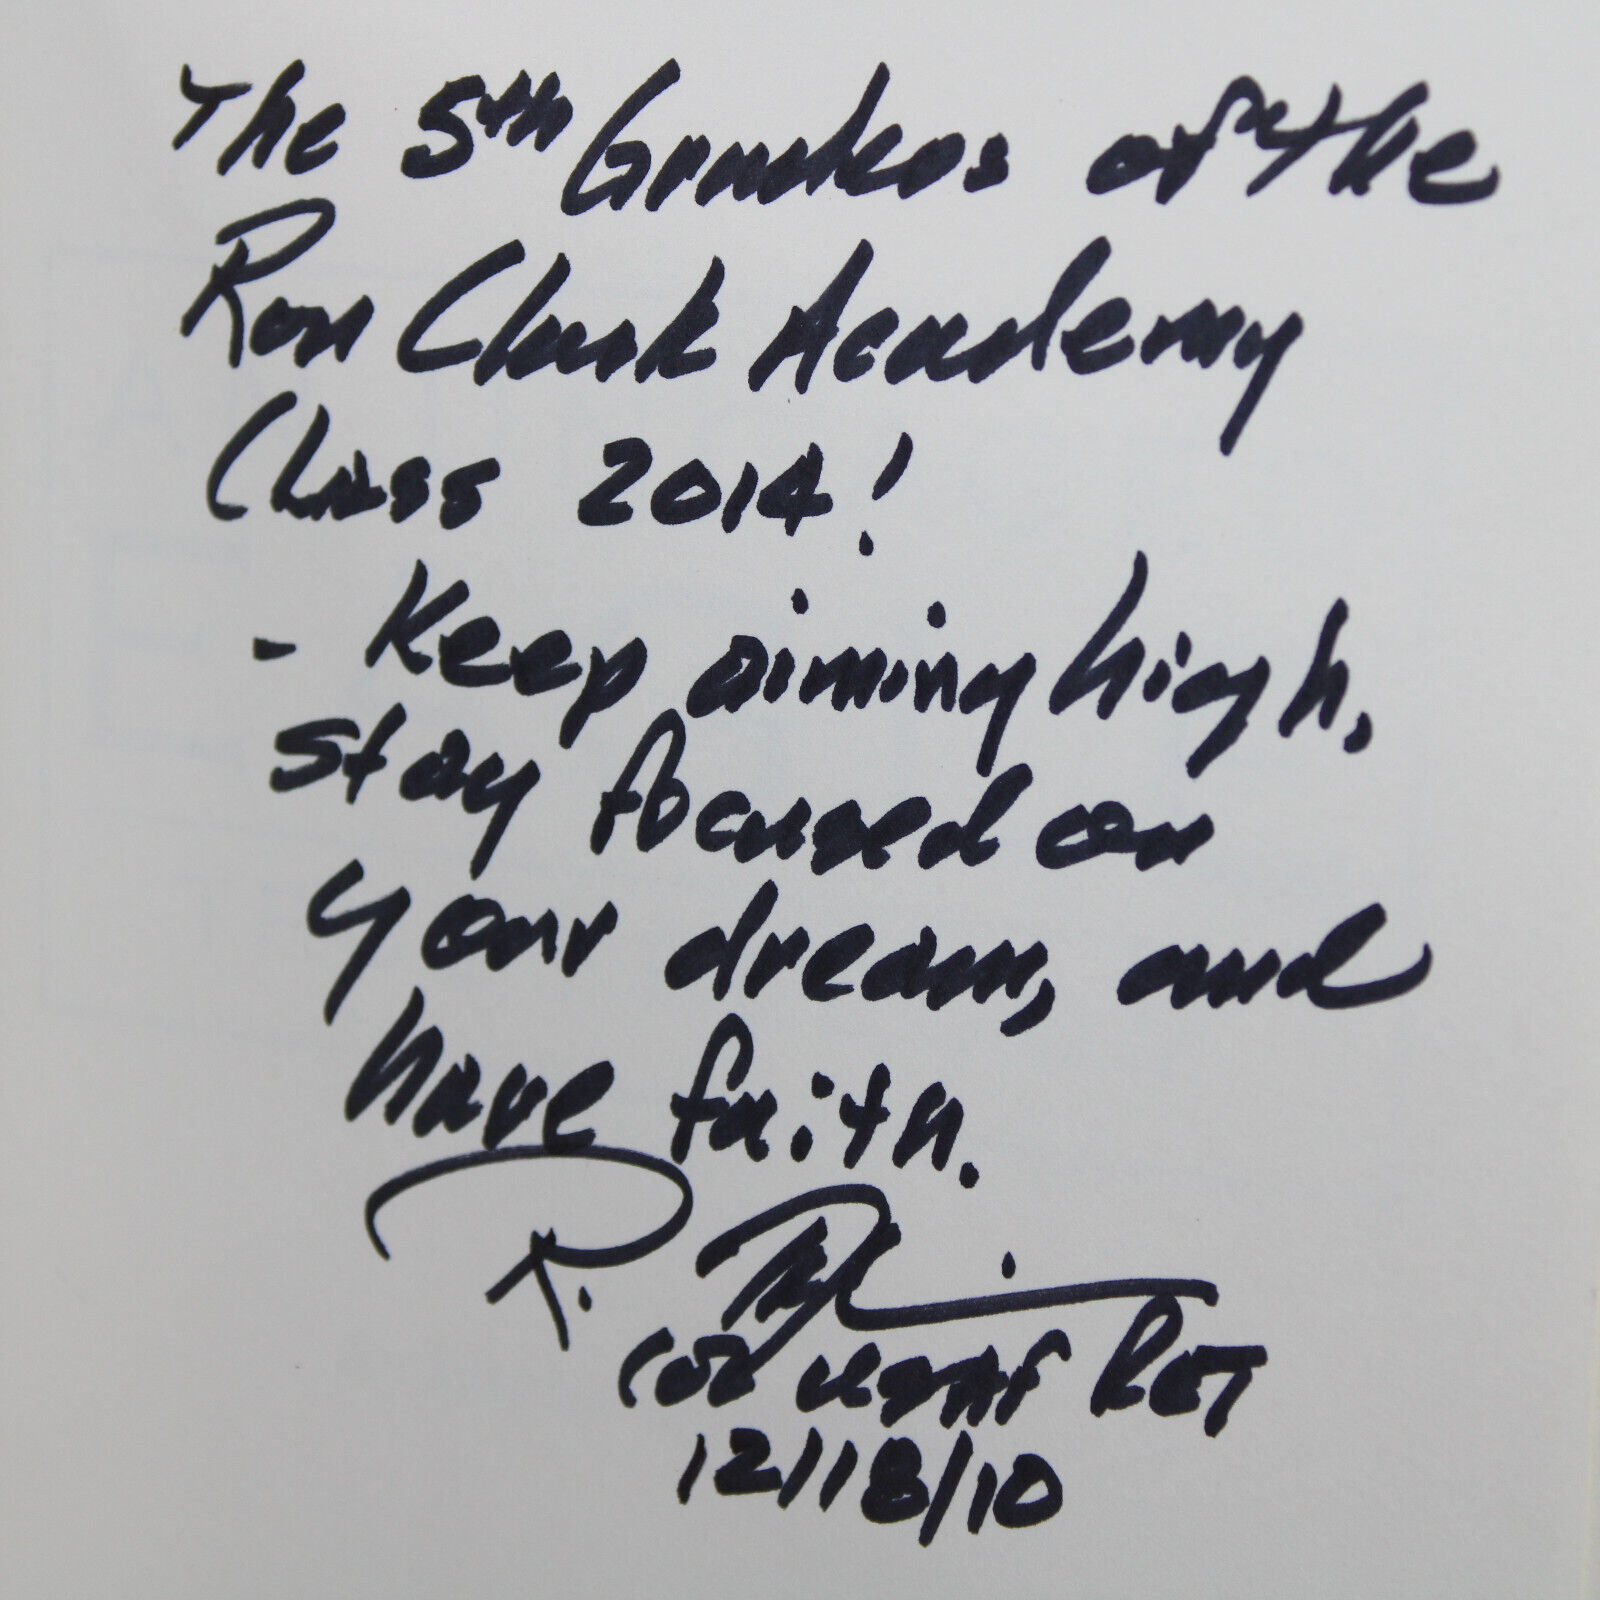 The 5th Graders of the
Ron Clark Academy
Class 2014!
- Keep aiming high,
stay focused on
your dream, and
have faith.
R.
Col USAF Ret
12/18/10